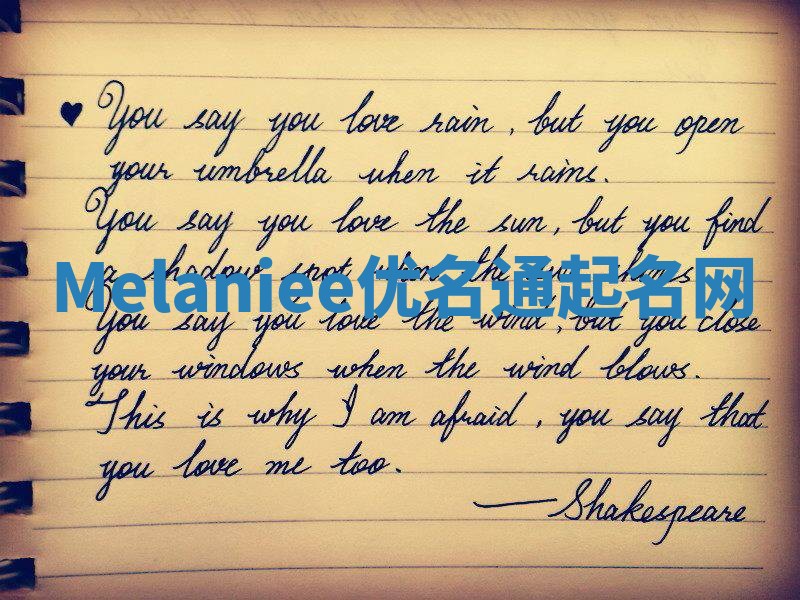 ♥ You say you love rain, but you open
your umbrella when it rains.
You say you love the sun, but you find
a shadow spot when the sun shines
Melaniee优名通起名网
You say you love the wind, but you close
your windows when the wind blows.
This is why I am afraid, you say that
you love me too.
—Shakespeare